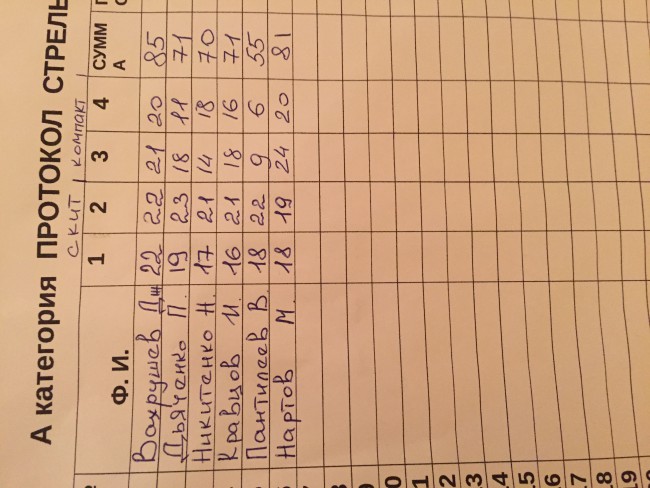 А категория ПРОТОКОЛ СТРЕЛЬ
СКИТ / КОМПАКТ /
Ф. И. 1 2 3 4 СУММА
Вахрушев Дж 22 22 21 20 85
Дьяченко П. 19 23 18 11 71
Никитенко Н. 17 21 14 18 70
Кравцов И. 16 21 18 16 71
Пантилеев В. 18 22 9 6 55
Нартов М. 18 19 24 20 81